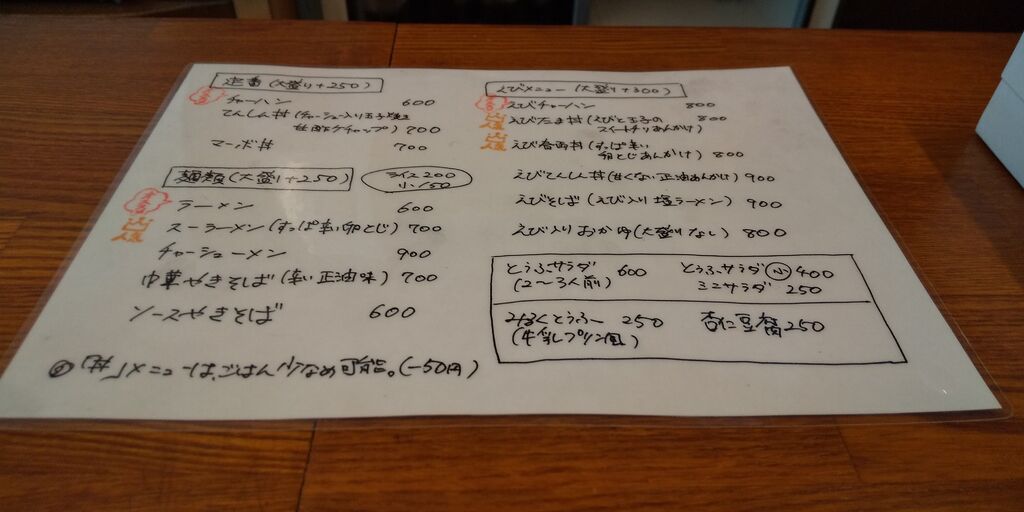 定番(大盛り+250)
チャーハン 600
てんしん丼(チャーシュー入り玉子焼き
甘酢ケチャップ) 700
マーボ丼 700
麺類(大盛り+250)
ライス200
小150
ラーメン 600
スーラーメン(すっぱ辛い卵とじ) 700
チャーシューメン 900
中華やきそば(辛い正油味) 700
ソースやきそば 600
「丼」メニューは、ごはん少なめ可能。(-50円)
えびメニュー(大盛り+300)
えびチャーハン 800
えびたま丼(えびと玉子の
スイートチリあんかけ) 800
えび (すっぱ辛い
卵とじあんかけ) 800
えびてんしん丼(甘くない正油あんかけ) 900
えびそば(えび入り塩ラーメン) 900
えび入りおかゆ(大盛りなし) 800
とうふサラダ 600
(2〜3人前)
とうふサラダ小 400
ミニサラダ 250
みるくとうふ 250
(牛乳プリン風)
杏仁豆腐 250